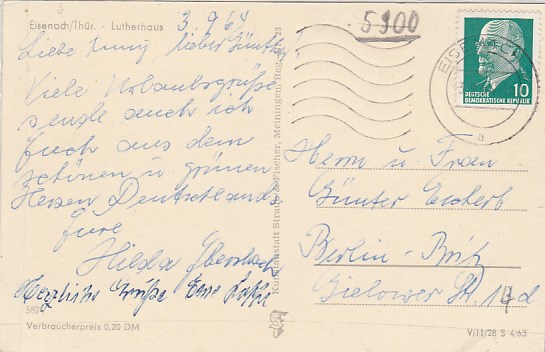 Eisenach/Thür. · Lutherhaus
3.9.64
5900
Liebe Anny, lieber Günther
Viele Urlaubsgrüße
sende auch ich
Euch aus dem
schönen u. grünen
Herzen Deutschlands
Eure
Hilda
Herzliche Grüße Eure
Verbraucherpreis 0,20 DM
Kunstanstalt Straub & Fischer, Meiningen
EISENACH
10
DEUTSCHE
DEMOKRATISCHE REPUBLIK
a
Herrn u. Frau
Günter
Berlin-Britz
Gielower Str. 14d
V/11/28 S 4/63